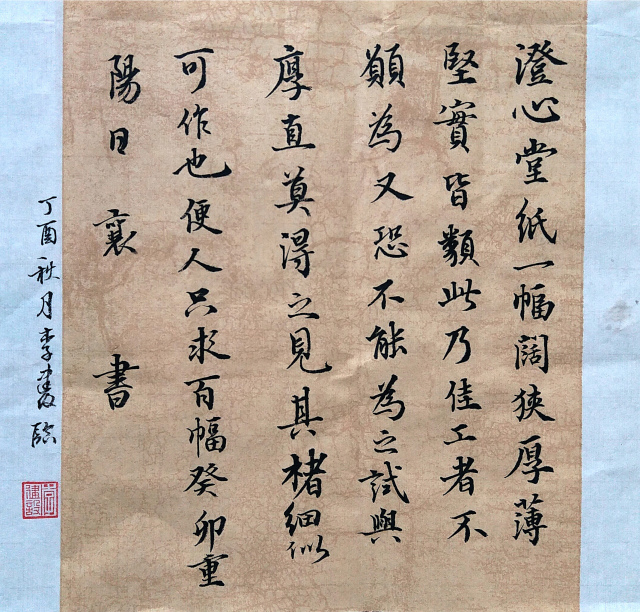 澄心堂紙一幅闊狹厚薄
堅實皆類此乃佳工者不
願為又恐不能為之試與
厚直莫得之見其楮細似
可作也便人只求百幅癸卯重
陽日襄書
丁酉秋月李
臨